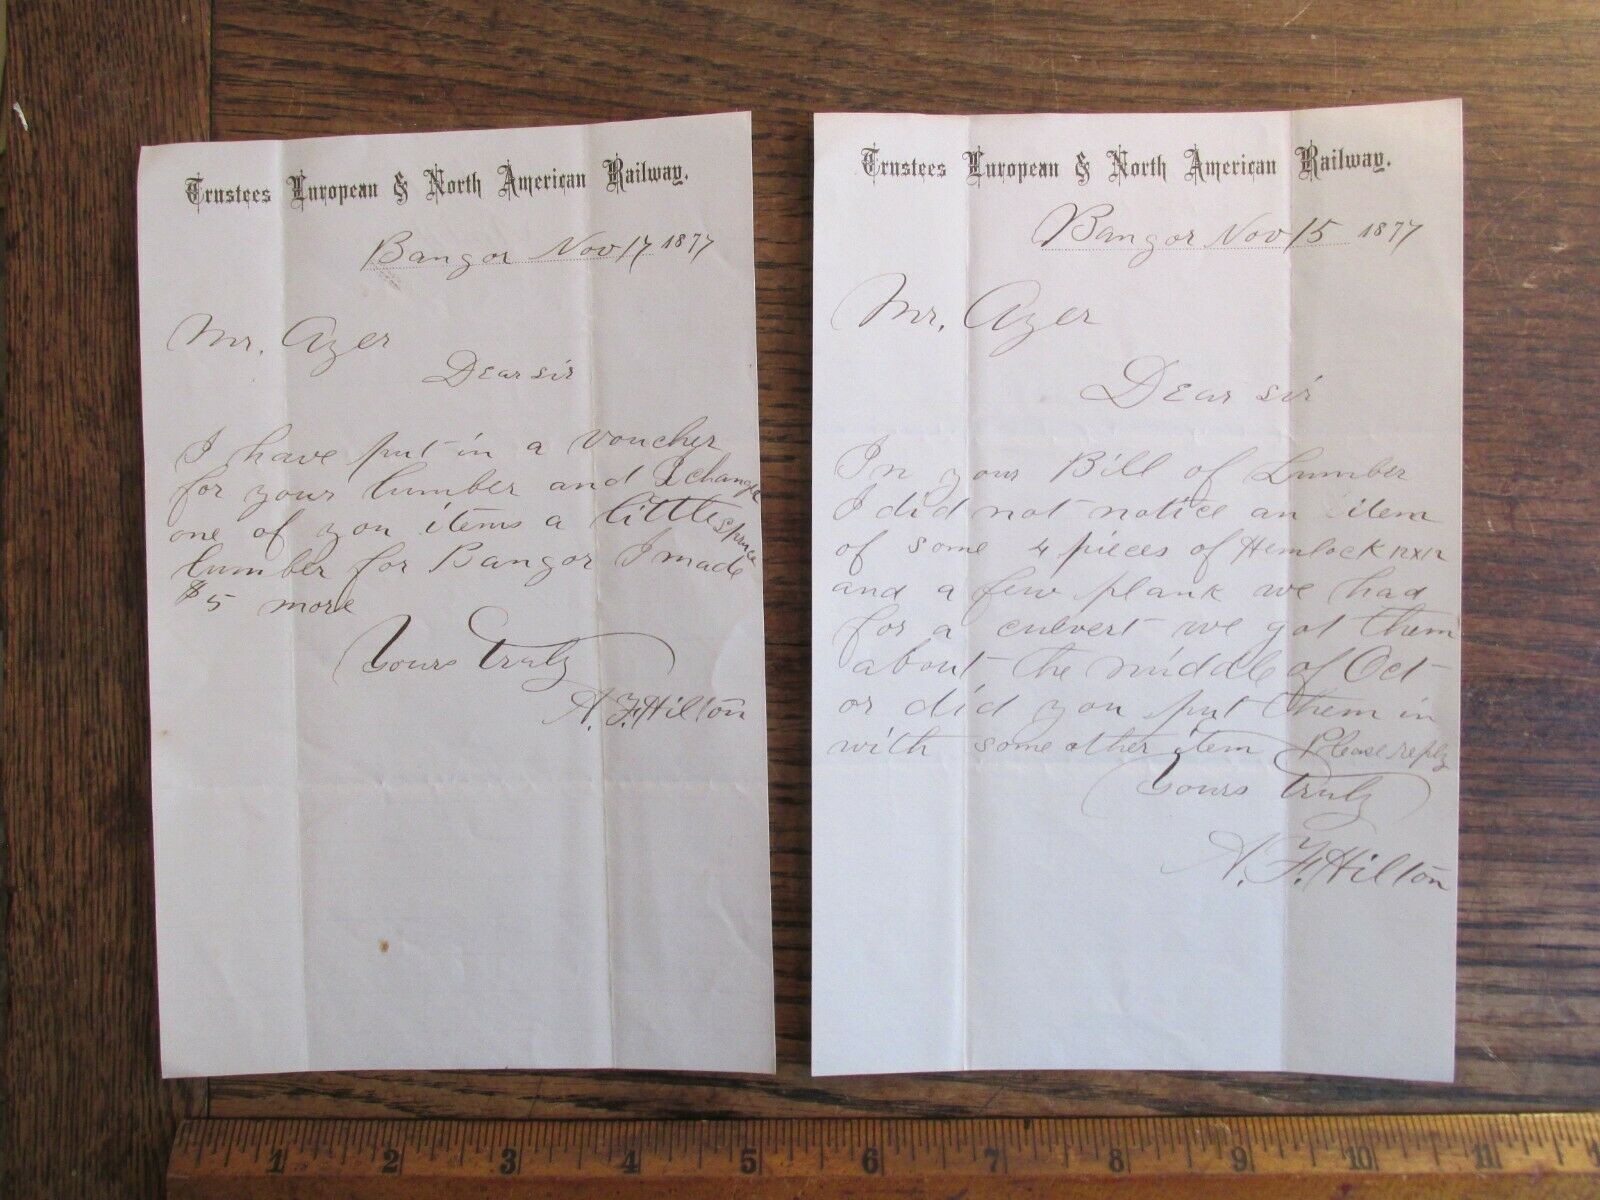 Trustees European & North American Railway.
Bangor Nov 17 1877
Mr. Ayer
Dear sir
I have put in a voucher
for your lumber and I change
one of you items a little spruce
lumber for Bangor I made
$5 more
Yours Truly
A. F. Hilton
Trustees European & North American Railway.
Bangor Nov 15 1877
Mr. Ayer
Dear sir
In your Bill of Lumber
I did not notice an item
of some 4 pieces of Hemlock 12x12
and a few plank we had
for a culvert we got them
about the middle of Oct
or did you put them in
with some other item Please reply
Yours Truly
A. F. Hilton
1 2 3 4 5 6 7 8 9 10 11